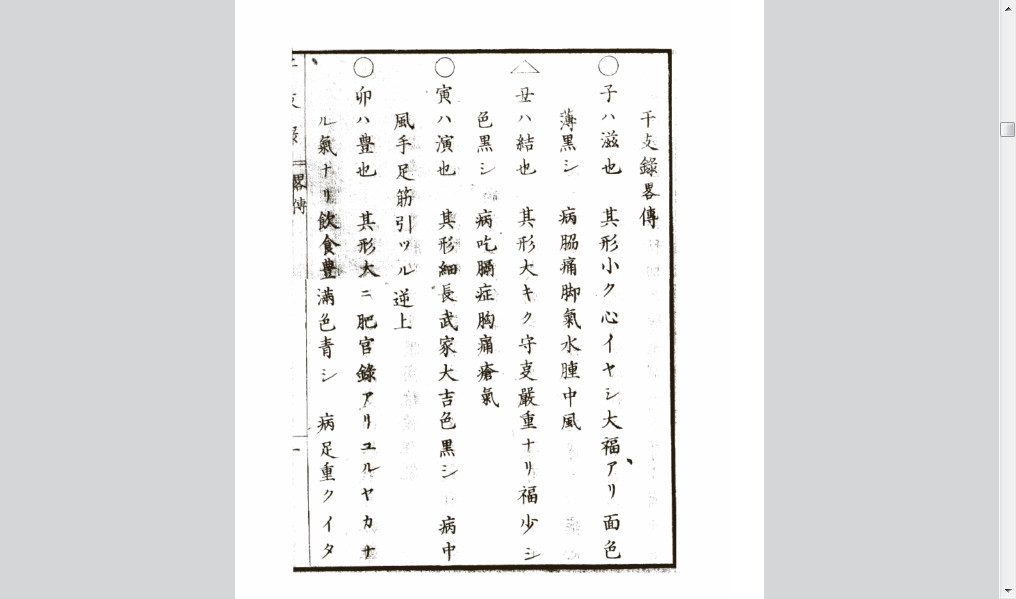 干支錄畧傳
○子ハ滋也　其形小ク心イヤシ大福アリ面色
薄黒シ　病脇痛脚氣水腫中風
△丑ハ結也　其形大キク守㕝嚴重ナリ福少シ
色黒シ　病吃膈症胸痛瘡氣
○寅ハ演也　其形細長武家大吉色黒シ　病中
風手足筋引ツル逆上
○卯ハ豊也　其形大ニ肥官錄アリユルヤカナ
ル氣ナリ飲食豊滿色青シ　病足重クイタ
干支錄 畧傳 一